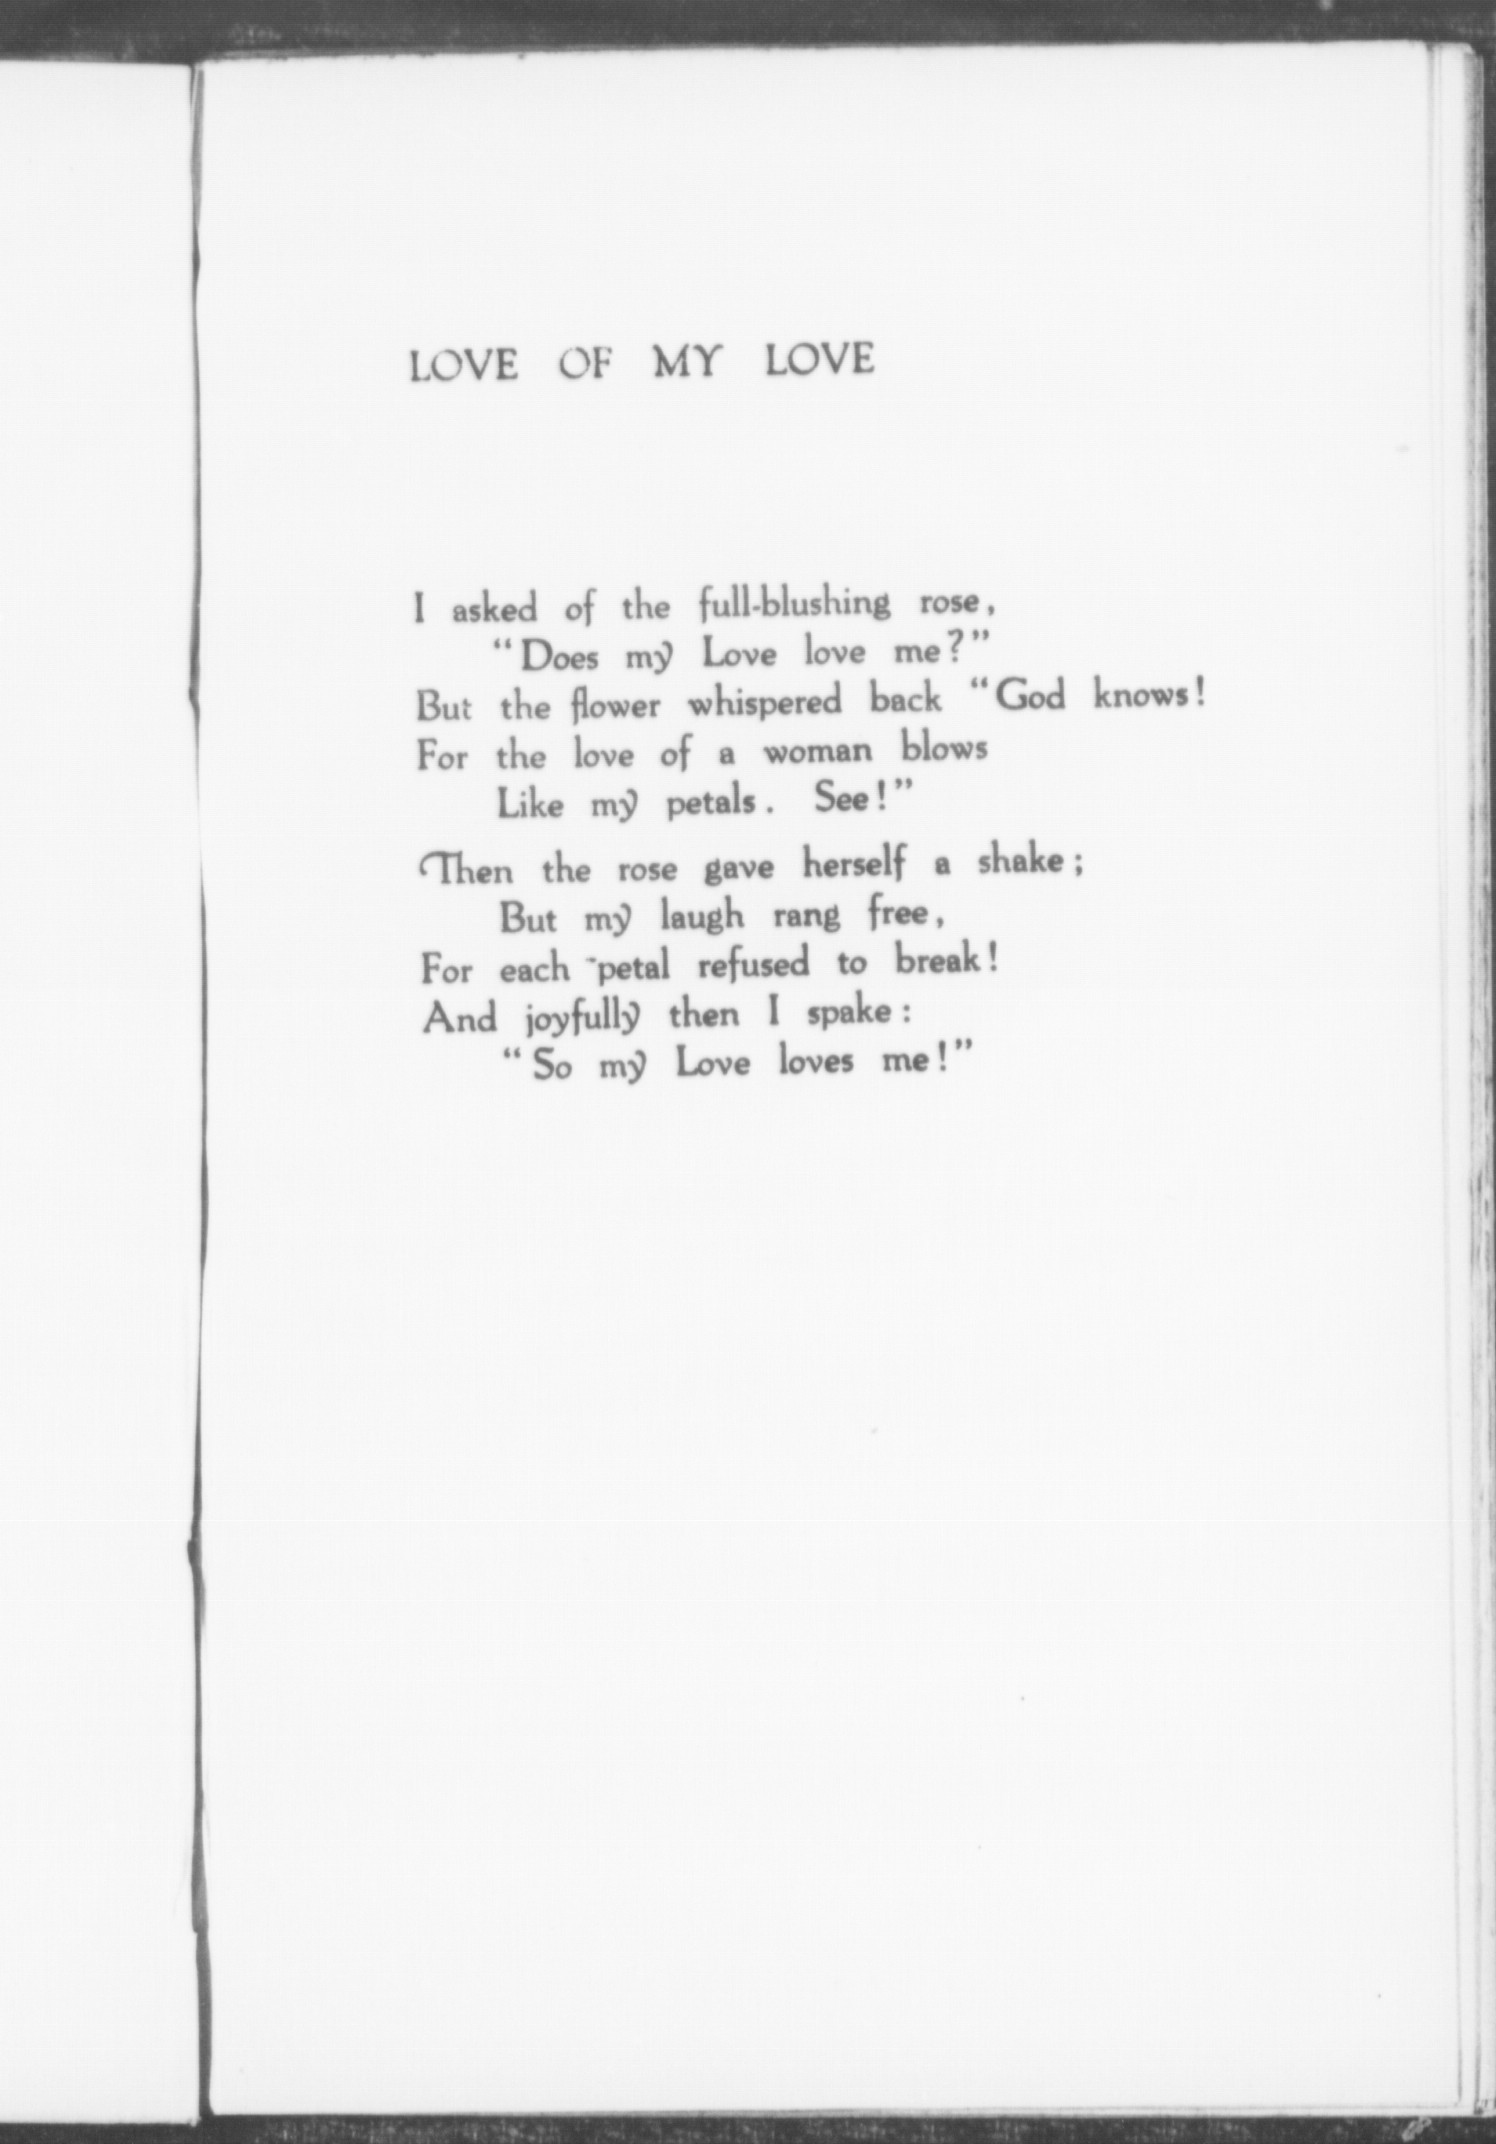 LOVE OF MY LOVE
I asked of the full-blushing rose,
“Does my Love love me?”
But the flower whispered back “God knows!
For the love of a woman blows
Like my petals. See!”
Then the rose gave herself a shake;
But my laugh rang free,
For each petal refused to break!
And joyfully then I spake:
“So my Love loves me!”